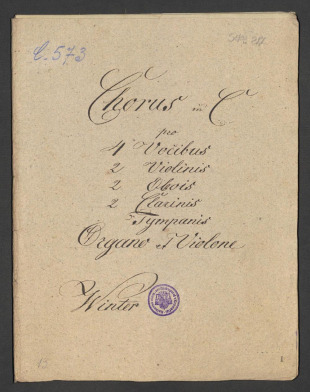 C. 573
Chorus in C
pro
4 Vocibus
2 Violinis
2 Obois
2 Clarinis
Tympanis
Organo et Violone
Winter